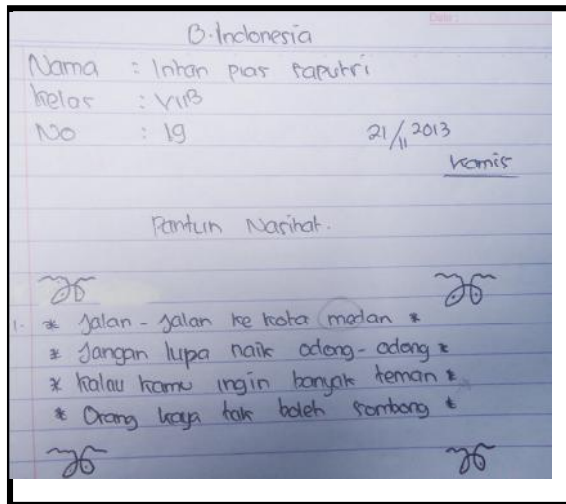 Date:
B.Indonesia
Nama : Intan pias saputri
kelas : VIIB
No : 19
21/11 2013
kamis
Pantun Nasihat.
1. * Jalan - Jalan ke kota medan *
* Jangan lupa naik odong - odong *
* kalau kamu ingin banyak teman *
* Orang kaya tak boleh sombong *